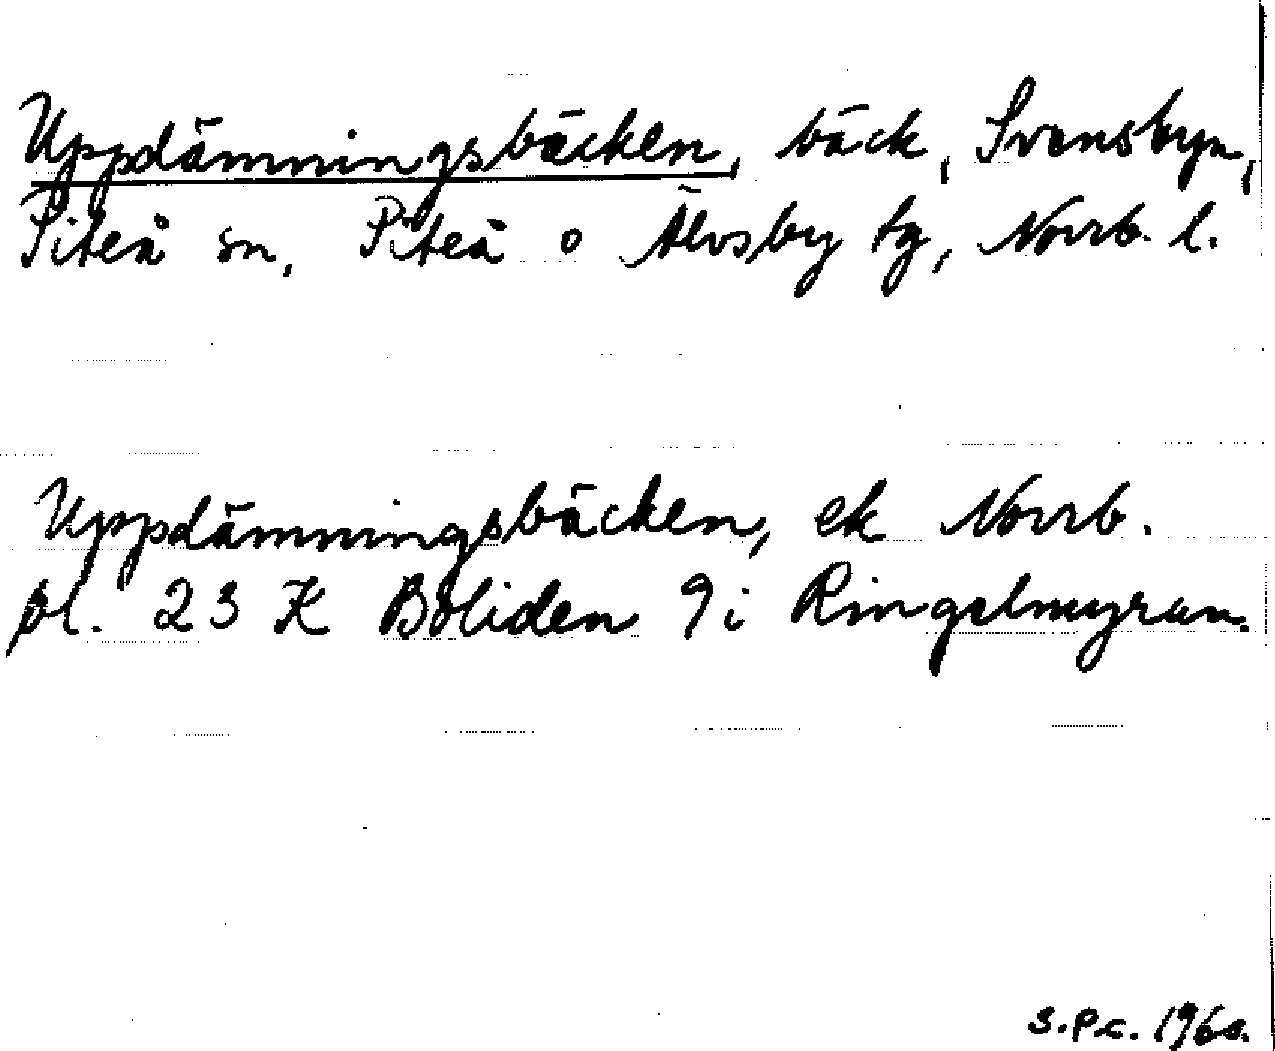 Uppdämningsbäcken, bäck, Svensbyn,
Piteå sn, Piteå o Älvsby tg, Norrb. l.
Uppdämningsbäcken, ek Norrb.
bl. 23 K Boliden 9i Ringelmyran.
s.p.c. 1960.